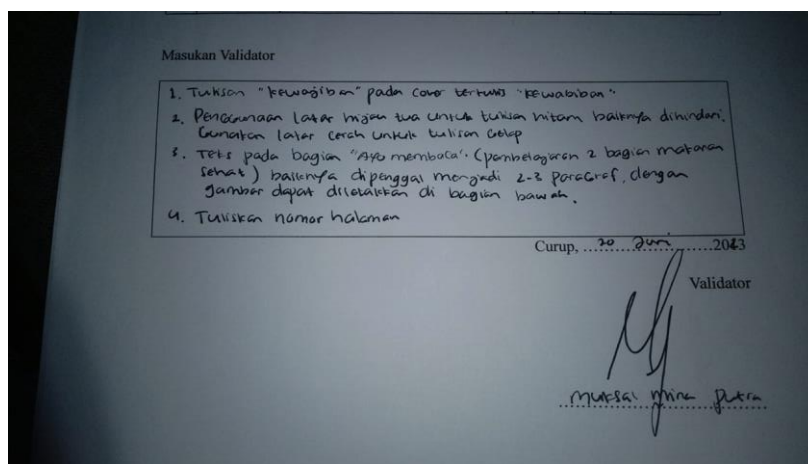 Masukan Validator
1. Tulisan "kewajiban" pada cover tertulis "kewabiban"
2. Penggunaan latar hijau tua untuk tulisan hitam baiknya dihindari.
Gunakan latar cerah untuk tulisan gelap
3. Teks pada bagian "Ayo membaca". (pembelajaran 2 bagian makanan
sehat) baiknya dipenggal menjadi 2-3 paragraf, dengan
gambar dapat diletakkan di bagian bawah.
4. Tuliskan nomor halaman
Curup, 20 Juni 2023
Validator
Muksal Mina Putra